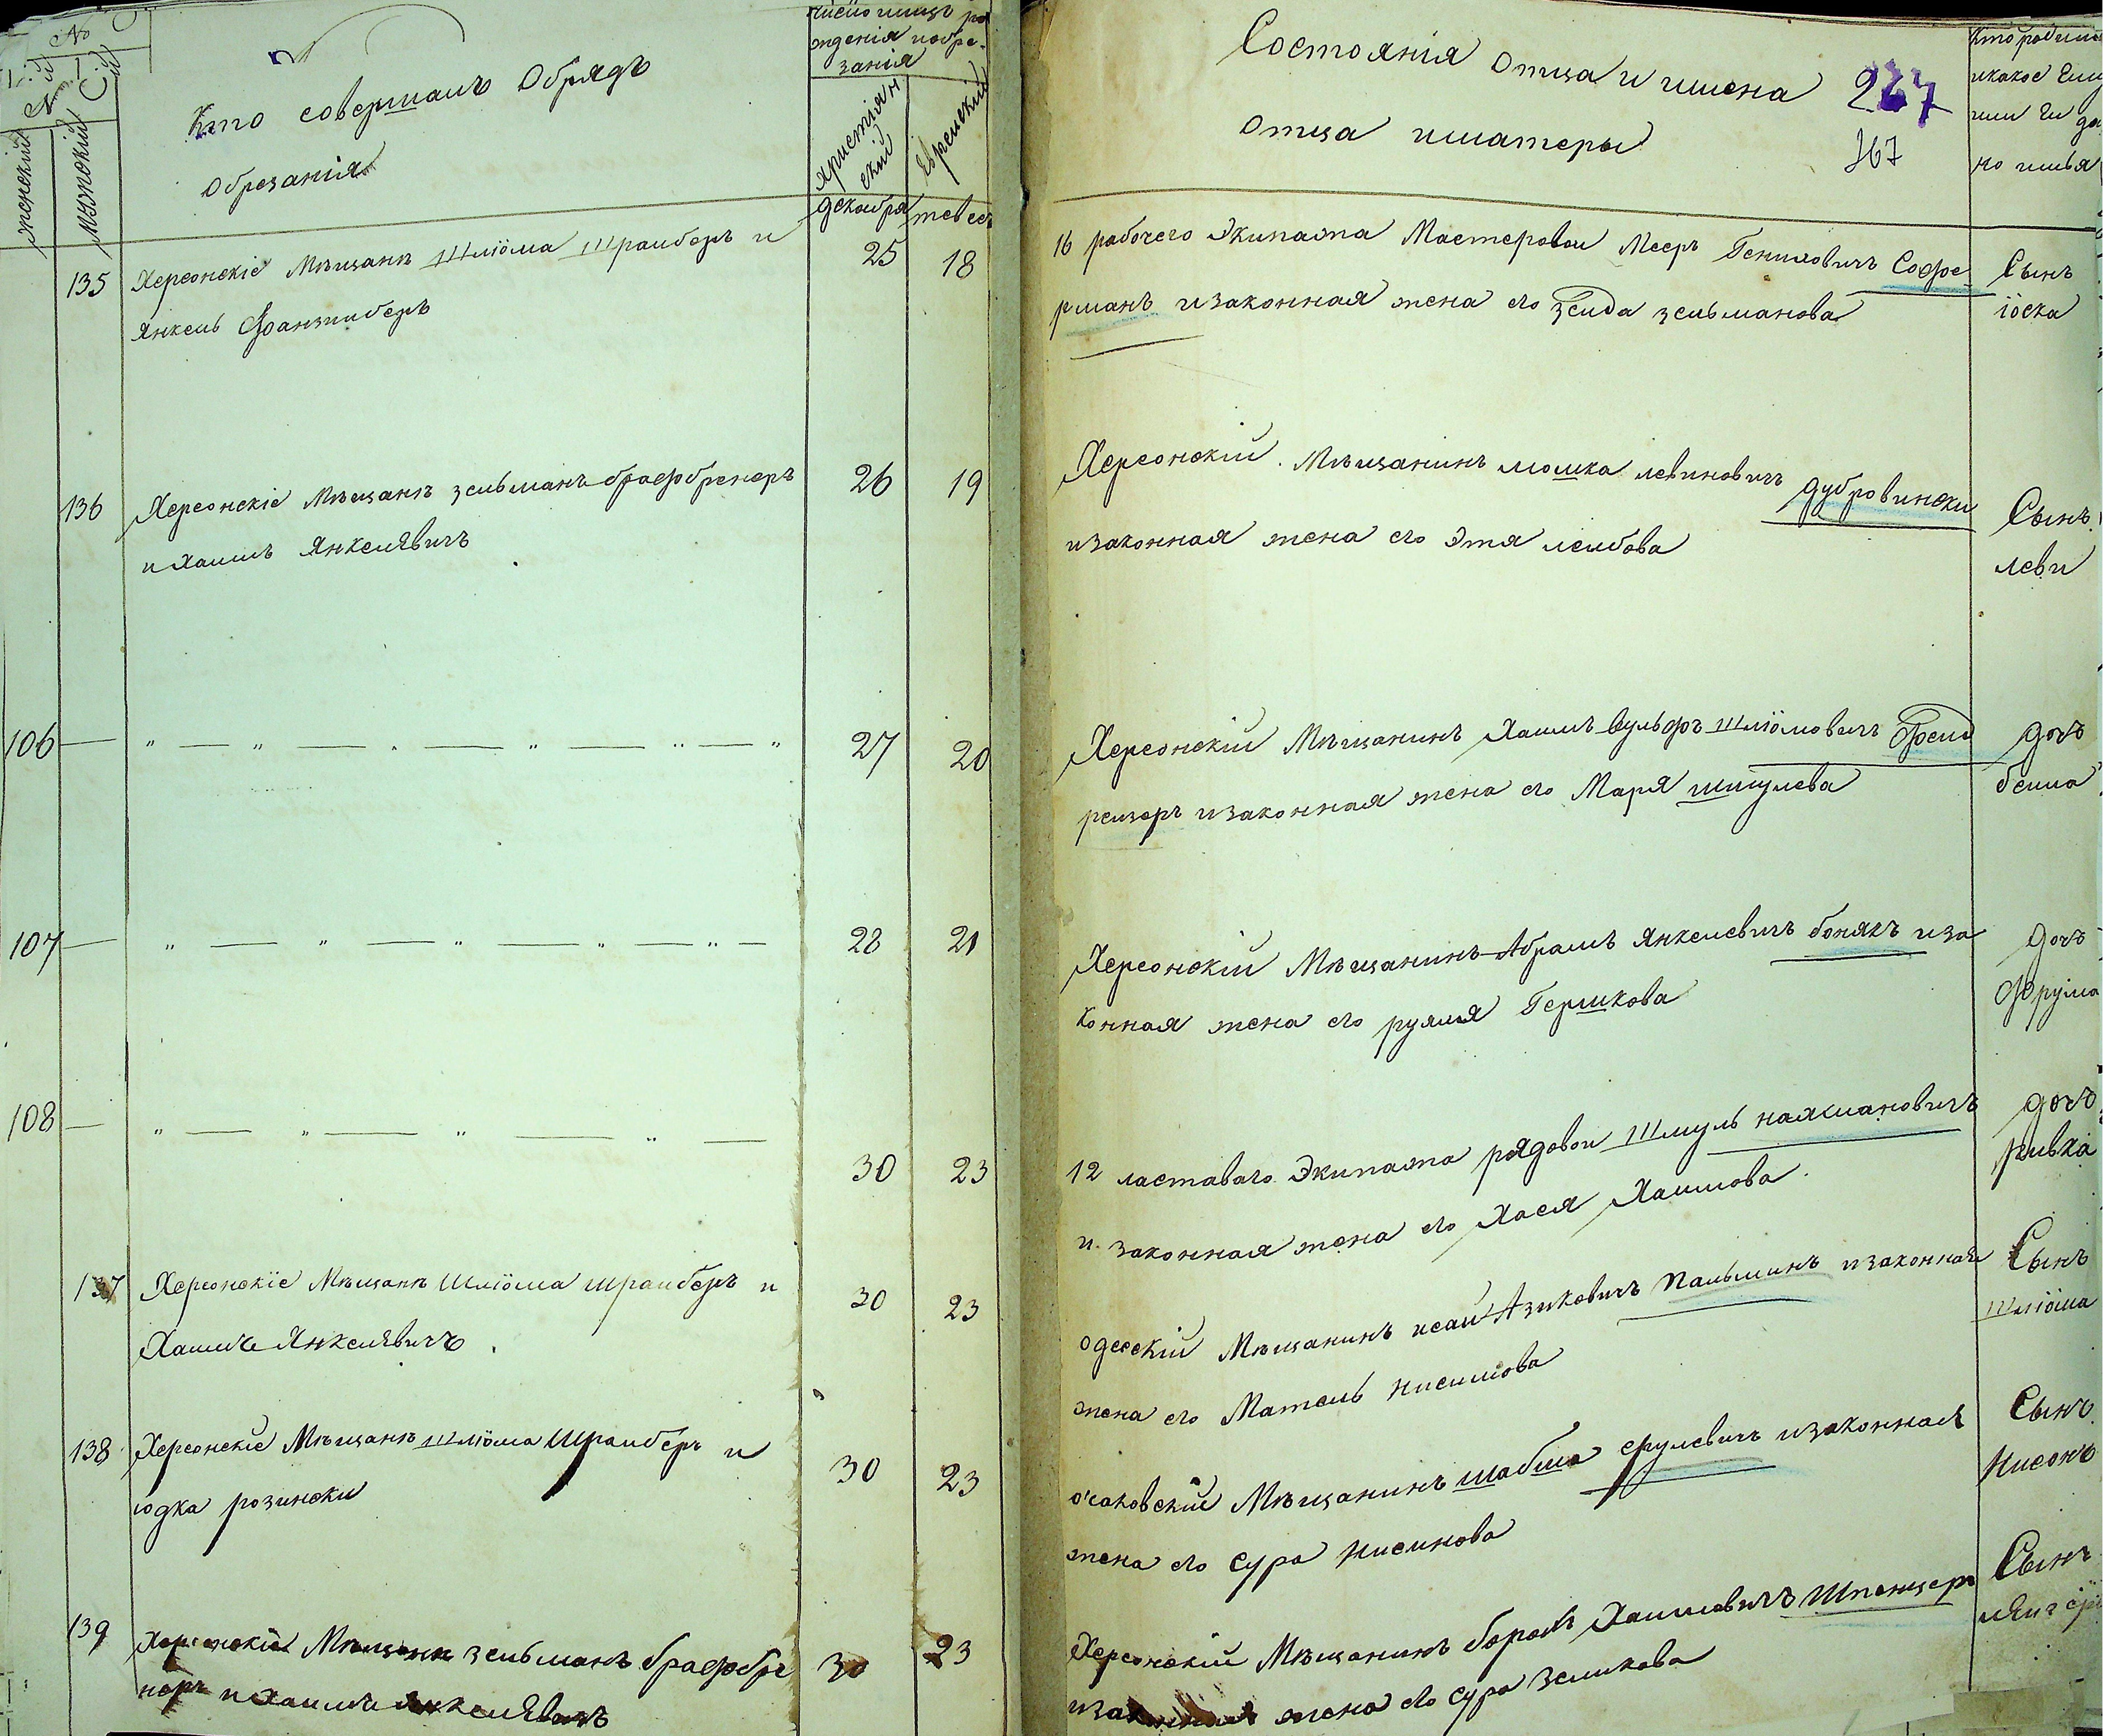 № С
женский
мужеский
Кто совершалъ Обрядъ
Обрезанія
число имцъ ро
жденія иобре-
занія
христіян
ский
Еврейский
декабря
тевес
Состоянія Отца и имена
Отца иматеры
227
167
Кто родился
икакое Ему
или Ей да
но имья
135
Херсонскіе Мѣщанѣ Шліома Шрайберъ и
Янкель Франзинберъ
25
18
16 рабочего Экипажа Мастеровои Меерь Гениховичъ Софе
рманъ изаконная жена его Зеида зельманова
Сынъ
іоска
136
Херсонскіе Мѣщанѣ зельманъ брафбренеръ
и Хаимъ Янкелѣвичъ
26
19
Херсонскій Мѣщанинъ мошка левиновичъ дубровински
изаконная жена его Этя леибова
Сынъ
леви
106
27
20
Херсонскій Мѣщанинъ Хаимъ Вульфъ Шліомовичъ Бреид
реизеръ изаконная жена его Маря шмулева
дочь
беила
107
28
21
Херсонскій Мѣщанинъ Абрамъ Янкелевичъ бонякъ иза
конная жена его рухля Гершкова
дочь
Фрума
108
30
23
12 ластаваго Экипажа рядовои Шмуль нахмановичъ
и законная жена его Хася Хаимова
дочь
ривка
137
Херсонскіе Мѣщанѣ Шліома шрайберъ и
Хаимъ Янкелѣвичъ
30
23
одесскій Мѣщанинъ исаи Азиковичъ Пальминъ изаконная
жена его Матель нисимова
Сынъ
Шліома
138
Херсонскіе Мѣщанѣ шліома Шрайберъ и
юдка розински
30
23
очаковскій Мѣщанинъ шабша срулевичъ изаконная
жена его Сура нисинова
Сынъ
нисонъ
139
Херсонскіе Мѣщанѣ зельманъ брафбре
неръ и Хаимъ Янкелѣвичъ
30
23
Херсонскій Мѣщанинъ борохъ Хаимовичъ Шпенцеръ
изаконная жена его сура зеликова
Сынъ